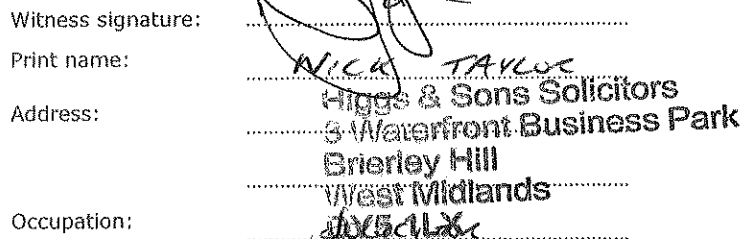 Witness signature:
Print name: NICK TAYLOR
Address: Higgs & Sons Solicitors
3 Waterfront Business Park
Brierley Hill
West Midlands
Occupation: